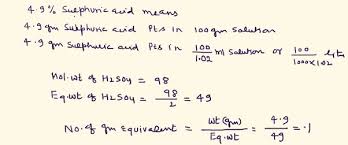 4.9% Sulphuric acid means
4.9 gm Sulphuric acid Pts in 100 gm Solution
4.9 gm Sulphuric acid Pts in 100/1.02 ml Solution or 100/1000×1.02 lit
Mol. wt of H2SO4 = 98
Eq. wt of H2SO4 = 98/2 = 49
No. of gm Equivalent = wt (gm)/Eq. wt = 4.9/49 = .1